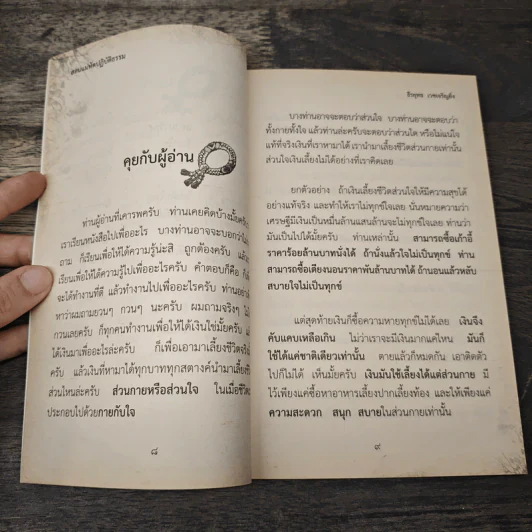 สอนแม่หัดปฏิบัติธรรม
คุยกับผู้อ่าน
ท่านผู้อ่านที่เคารพครับ ท่านเคยคิดบ้างมั้ยครับ
เราเรียนหนังสือไปเพื่ออะไร บางท่านอาจจะบอกว่า
ถาม ก็เรียนเพื่อให้ได้ความรู้น่ะสิ ถูกต้องครับ แล้ว
เรียนเพื่อให้ได้ความรู้ไปเพื่ออะไรครับ คำตอบก็คือ ก็เพื่อ
จะได้ทำงานที่ดี แล้วทำงานไปเพื่ออะไรครับ ท่านอย่า
หาว่าผมถามยวนๆ กวนๆ นะครับ ผมถามจริงๆ ไม่
กวนเลยครับ ก็ทุกคนทำงานเพื่อให้ได้เงินใช่มั้ยครับ
ได้เงินมาเพื่ออะไรล่ะครับ ก็เพื่อเอามาเลี้ยงชีวิต
ครับ แล้วเงินที่หามาได้ทุกบาททุกสตางค์นำมาเลี้ยง
ส่วนไหนล่ะครับ ส่วนกายหรือส่วนใจ ในเมื่อชีวิต
ประกอบไปด้วยกายกับใจ
๘
ธีรยุทธ เวชเจริญยิ่ง
บางท่านอาจจะตอบว่าส่วนใจ บางท่านอาจจะตอบว่า
ทั้งกายทั้งใจ แล้วท่านล่ะครับจะตอบว่าส่วนใด หรือไม่แน่ใจ
แท้ที่จริงเงินที่เราหามาได้ เรานำมาเลี้ยงชีวิตส่วนกายเท่านั้น
ส่วนใจเงินเลี้ยงไม่ได้อย่างที่เราคิดเลย
ยกตัวอย่าง ถ้าเงินเลี้ยงชีวิตส่วนใจให้มีความสุขได้
อย่างแท้จริง และทำให้เราไม่ทุกข์ใจเลย นั่นหมายความว่า
เศรษฐีมีเงินเป็นหมื่นล้านแสนล้านจะไม่ทุกข์ใจเลย ท่านว่า
มันเป็นไปได้มั้ยครับ ท่านเหล่านั้น สามารถซื้อเก้าอี้
ราคาร้อยล้านบาทนั่งได้ ถ้านั่งแล้วใจไม่เป็นทุกข์ ท่าน
สามารถซื้อเตียงนอนราคาพันล้านบาทได้ ถ้านอนแล้วหลับ
สบายใจไม่เป็นทุกข์
แต่สุดท้ายเงินก็ซื้อความหายทุกข์ไม่ได้เลย เงินจึง
คับแคบเหลือเกิน ไม่ว่าเราจะมีเงินมากแค่ไหน มันก็
ใช้ได้แค่ชาติเดียวเท่านั้น ตายแล้วก็หมดกัน เอาติดตัว
ไปก็ไม่ได้ เห็นมั้ยครับ เงินมันใช้เลี้ยงได้แต่ส่วนกาย มี
ไว้เพียงแค่ซื้อหาอาหารเลี้ยงปากเลี้ยงท้อง และให้เพียงแค่
ความสะดวก สนุก สบายในส่วนกายเท่านั้น
๙